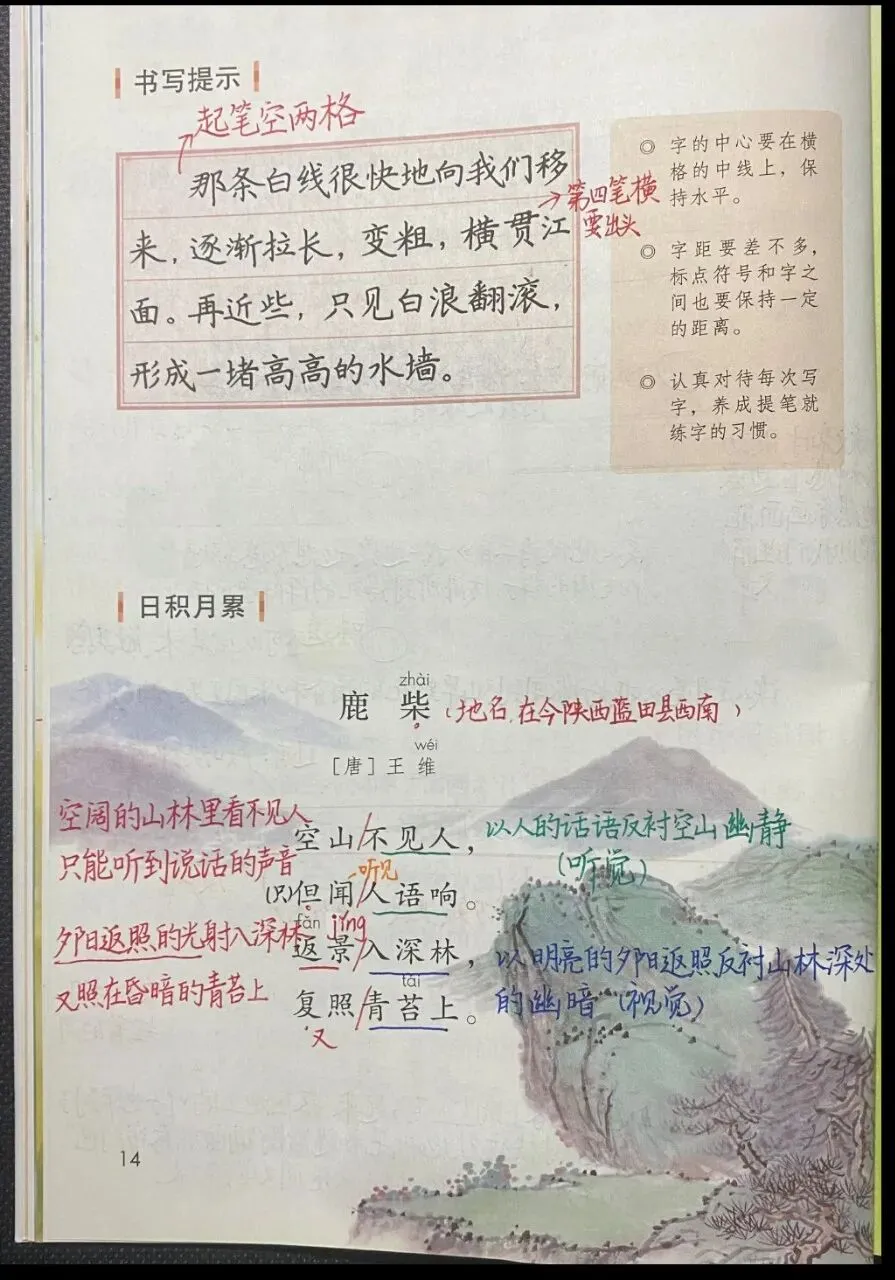 书写提示
起笔空两格
那条白线很快地向我们移
来，逐渐拉长，变粗，横贯江
面。再近些，只见白浪翻滚，
形成一堵高高的水墙。
第四笔横
要出头
◎ 字的中心要在横
格的中线上，保
持水平。
◎ 字距要差不多，
标点符号和字之
间也要保持一定
的距离。
◎ 认真对待每次写
字，养成提笔就
练字的习惯。
日积月累
zhài
鹿柴（地名,在今陕西蓝田县西南）
wéi
［唐］王维
空阔的山林里看不见人
只能听到说话的声音
空山/不见人，
以人的话语反衬空山幽静
（听觉）
听见
(只)但闻/人语响。
夕阳返照的光射入深林
又照在昏暗的青苔上
fǎn jǐng
返景/入深林，
以明亮的夕阳返照反衬山林深处
的幽暗（视觉）
tái
复照/青苔上。
又
14